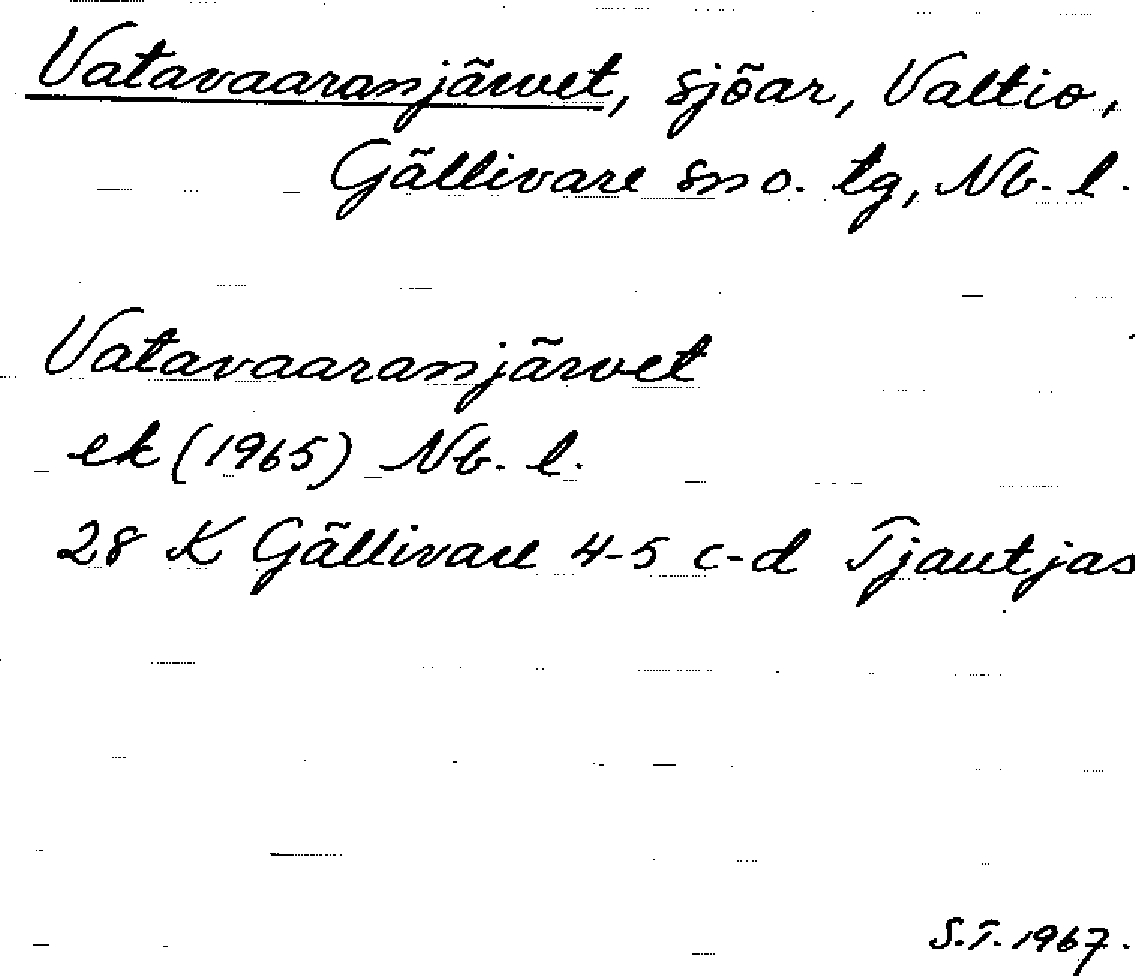 Vatavaaranjärvet, sjöar, Valtio,
Gällivare sn o. tg, Nb. l.
Vatavaaranjärvet
ek (1965) Nb. l.
28 K Gällivare 4-5 c-d Tjautjas
S.T. 1967.